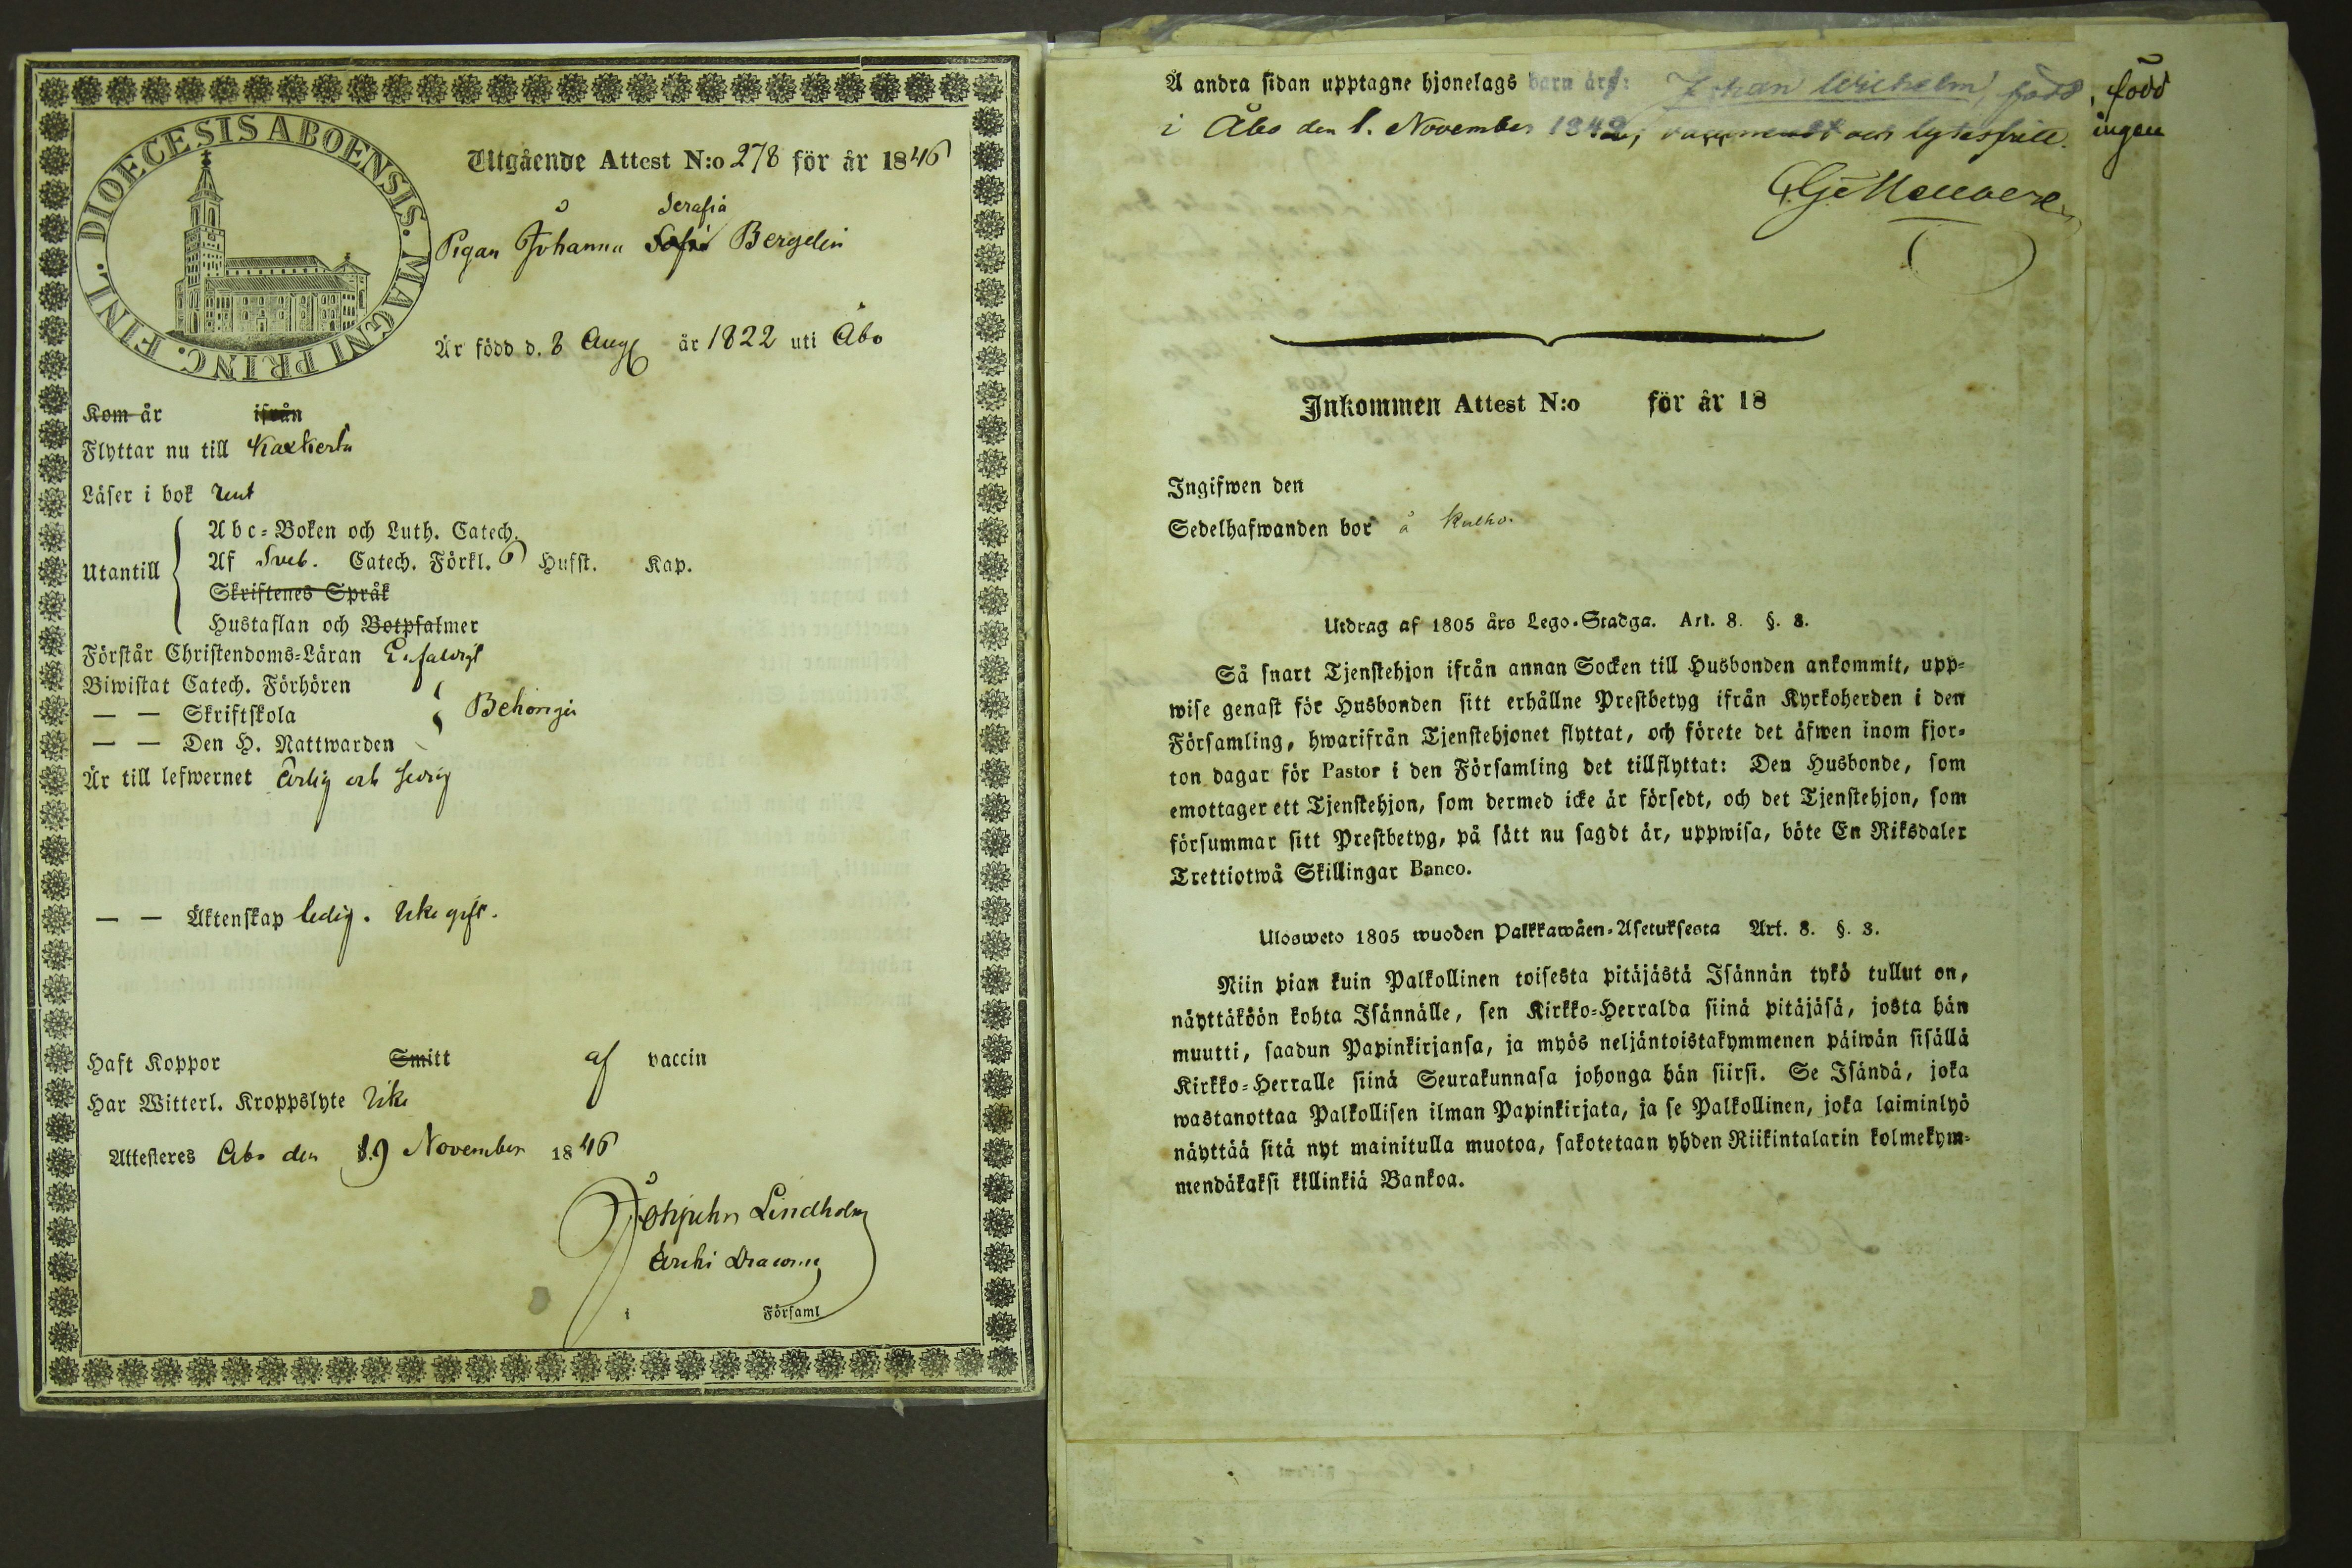 DIOECESIS ABOENSIS. MAGNI PRINC. FINL.
Utgående Attest N:o 278 för år 1846
Serafia
Pigan Johanna Sofia Bergelin
Är född d. 8 Aug år 1822 uti Åbo
Kom år ifrån
Flyttar nu till Kakskerta
Läser i bok rent
Utantill
Abc-Boken och Luth. Catech.
Af Sveb. Catech. Förkl. 6 Hufst. Kap.
Skriftenes Språk
Hustaflan och Botpsalmer
Förstår Christendoms-Läran Enfaldigt
Biwistat Catech. Förhören
— — Skriftskola
Behörigen
— — Den H. Nattwarden
Är till lefwernet Ärlig och sedig
— — Äktenskap ledig. Icke gift.
Haft Koppor Smitt af vaccin
Har Witterl. Kroppslyte Icke
Attesteres Åbo den 19 November 1846
Lindholm
i Församl
Å andra sidan upptagne hjonelags barn är: Johan Wilhelm, född
i Åbo den 1. November 1842, och lytesfri
, född
ingen
Inkommen Attest N:o för år 18
Ingifwen den
Sedelhafwanden bor å Kulho.
Utdrag af 1805 års Lego-Stadga. Art. 8. §. 3.
Så snart Tjenstehjon ifrån annan Socken till Husbonden ankommit, upp-
wise genast för Husbonden sitt erhållne Prestbetyg ifrån Kyrkoherden i den
Församling, hwarifrån Tjenstehjonet flyttat, och förete det äfwen inom fjor-
ton dagar för Pastor i den Församling det tillflyttat: Den Husbonde, som
emottager ett Tjenstehjon, som dermed icke är försedt, och det Tjenstehjon, som
försummar sitt Prestbetyg, på sätt nu sagdt är, uppwisa, böte En Riksdaler
Trettiotwå Skillingar Banco.
Ulosweto 1805 wuoden Palkkawäen-Asetuksesta Art. 8. §. 3.
Niin pian kuin Palkollinen toisesta pitäjästä Isännän tykö tullut on,
näyttäköön kohta Isännälle, sen Kirkko-Herralda siinä pitäjäsä, josta hän
muutti, saadun Papinkirjansa, ja myös neljäntoistakymmenen päiwän sisällä
Kirkko-Herralle siinä Seurakunnasa johonga hän siirsi. Se Isändä, joka
wastanottaa Palkollisen ilman Papinkirjata, ja se Palkollinen, joka laiminlyö
näyttää sitä nyt mainitulla muotoa, sakotetaan yhden Riikintalarin kolmekym-
mendäkaksi killinkiä Bankoa.